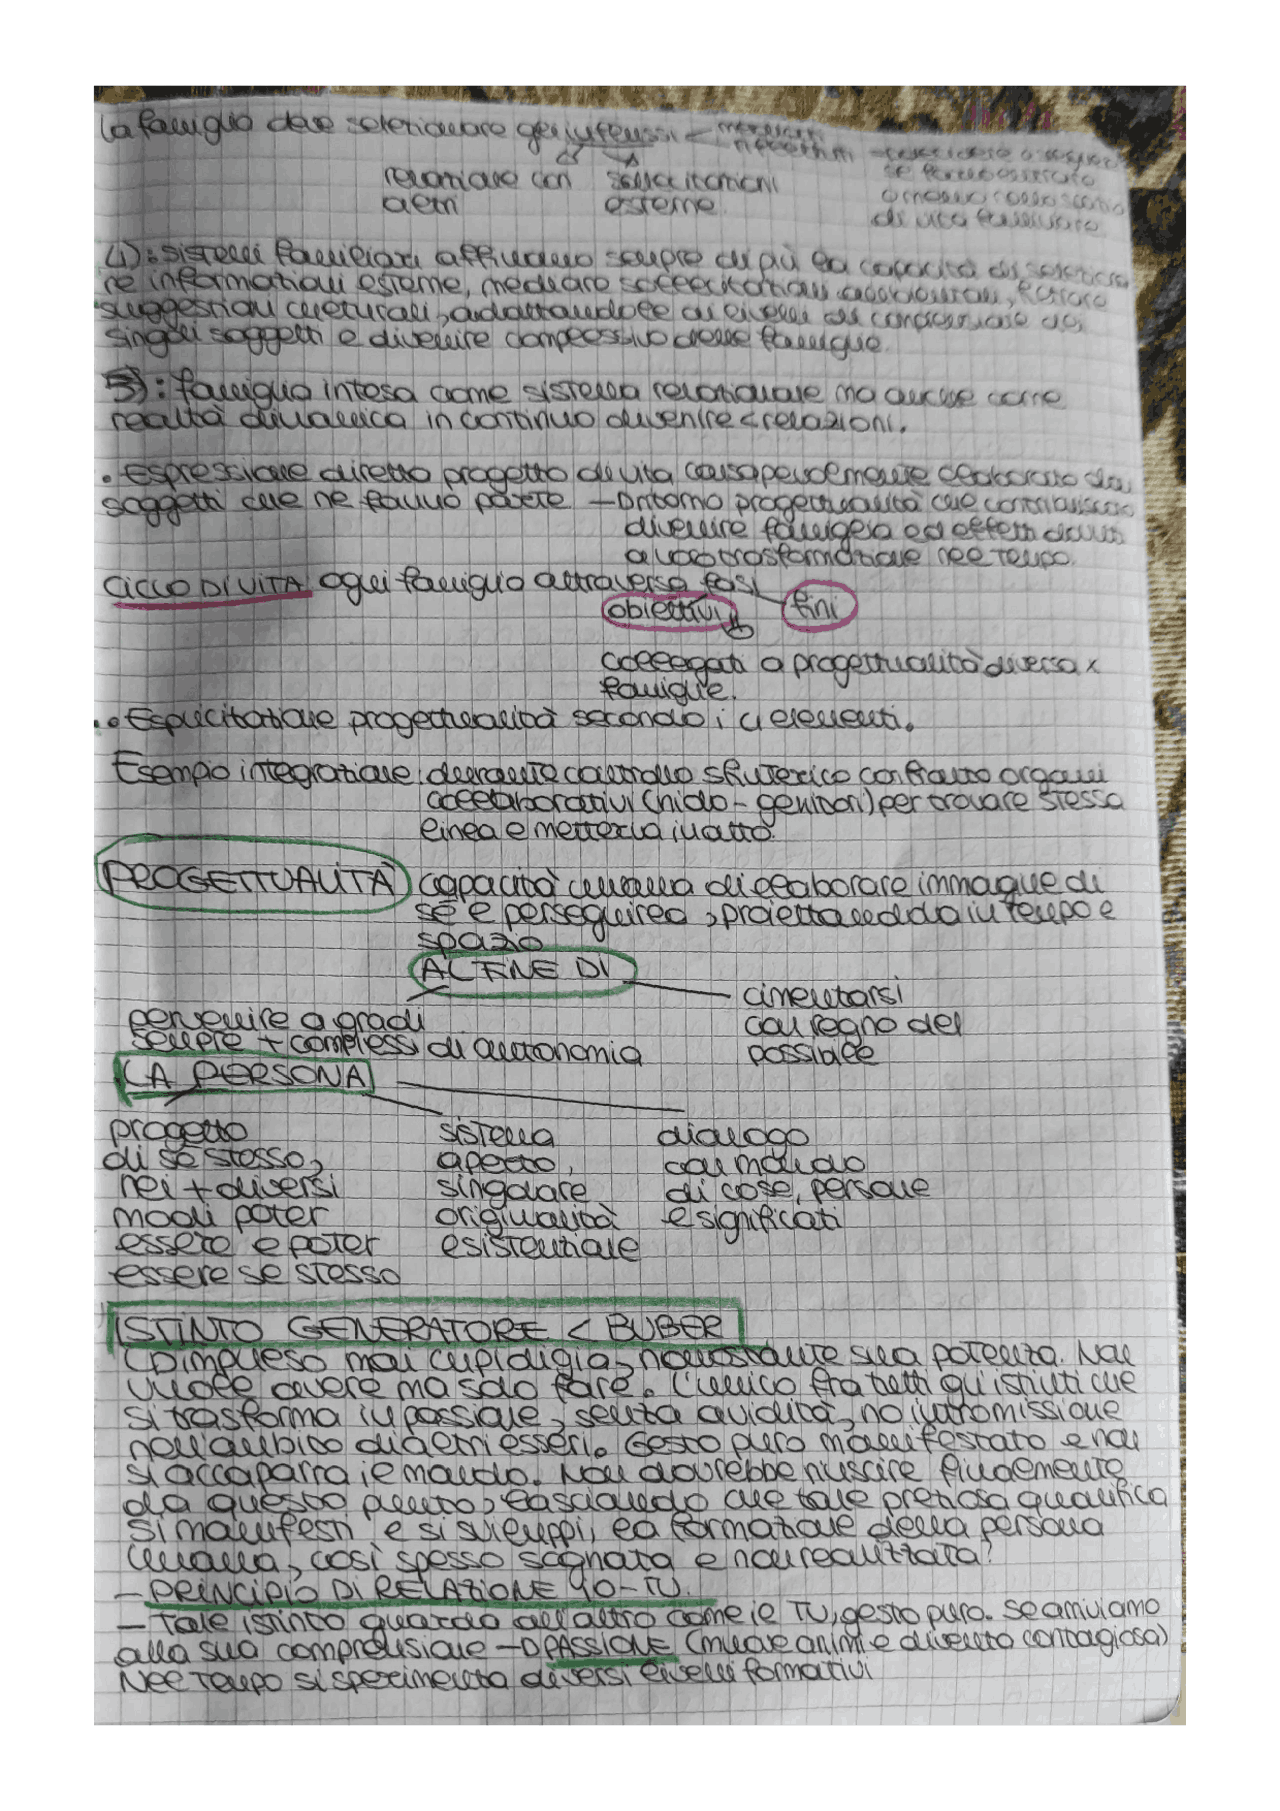 La famiglia deve selezionare gli influssi <
relazione con sollecitazioni
altri esterne
se famiglia
di vita familiare
4): sistemi familiari affinano sempre di più la capacità di seleziona
re informazioni esterne, mediare sollecitazioni ambientali, filtrare
suggestioni culturali, adattandole ai livelli di comprensione dei
singoli soggetti e divenire complessivo delle famiglie.
5): famiglia intesa come sistema relazionale ma anche come
realtà dinamica in continuo divenire < relazioni.
• Espressione diretta progetto di vita consapevolmente elaborato da
soggetti che ne fanno parte → Intorno progettualità che
divenire famiglia ed effetti dovuti
a loro trasformazione nel tempo.
CICLO DI VITA ogni famiglia attraversa fasi
obiettivi fini
collegati a progettualità diversa x
famiglie.
• Esplicitazione progettualità secondo i 4 elementi.
Esempio integrazione: durante controllo sfinterico confronto organi
collaborativi (nido - genitori) per trovare stessa
linea e metterla in atto.
PROGETTUALITÀ capacità umana di elaborare immagine di
sé e perseguirla, proiettandola in tempo e
spazio
AL FINE DI
cimentarsi
pervenire a gradi con regno del
sempre + complessi di autonomia possibile
LA PERSONA
progetto sistema dialogo
di se stesso, aperto, con mondo
nei + diversi singolare di cose, persone
modi poter originalità e significati
essere e poter esistenziale
essere se stesso
ISTINTO GENERATORE < BUBER
↳ impulso mai cupidigia, nonostante sua potenza. Non
vuole avere ma solo fare. L'unico fra tutti gli istinti che
si trasforma in passione, senza avidità, no intromissione
nell'ambito di altri esseri. Gesto puro manifestato e non
si accaparra il mondo. Non dovrebbe riuscire finalmente
da questo punto, lasciando che tale preziosa qualifica
si manifesti e si sviluppi, la formazione della persona
umana, così spesso sognata e non realizzata?
- PRINCIPIO DI RELAZIONE IO-TU.
- Tale istinto guarda all'altro come il TU, gesto puro. Se arriviamo
alla sua comprensione → PASSIONE (muove animi e diventa contagiosa)
Nel tempo si sperimenta diversi livelli formativi